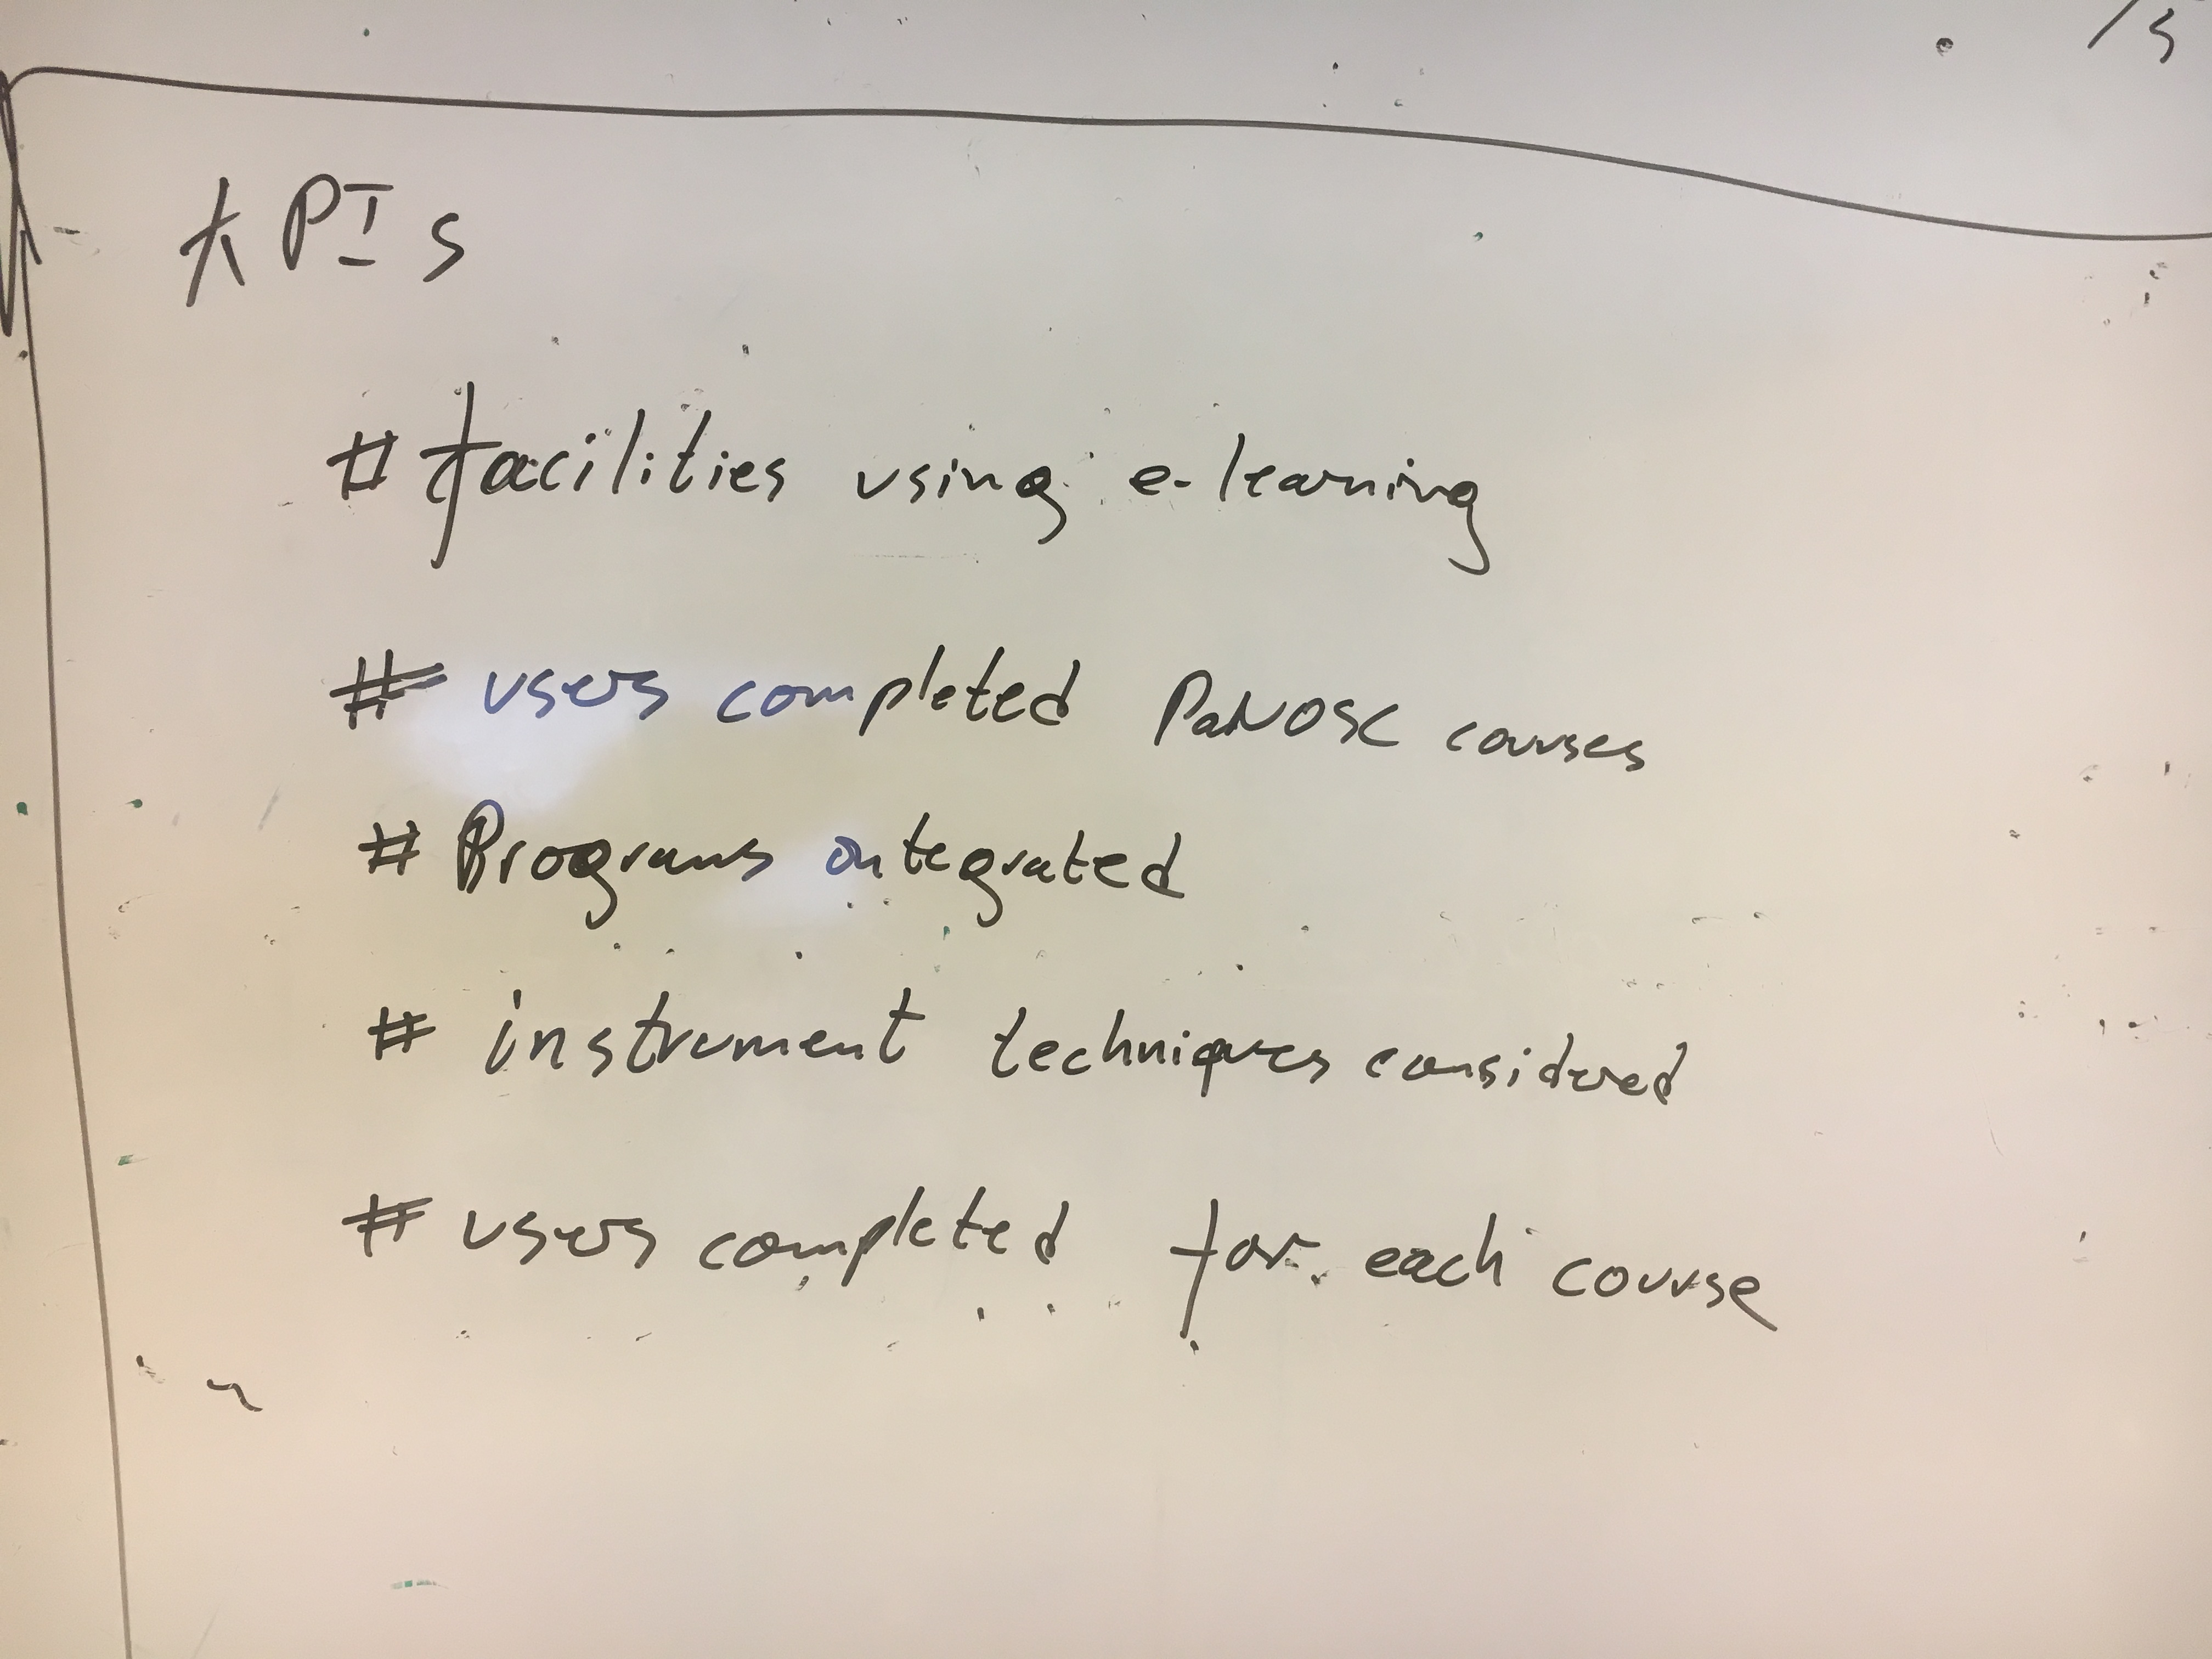 KPIs
# facilities using e-learning
# users completed PaNOSC courses
# Programs integrated
# instrument techniques considered
# users completed for each course